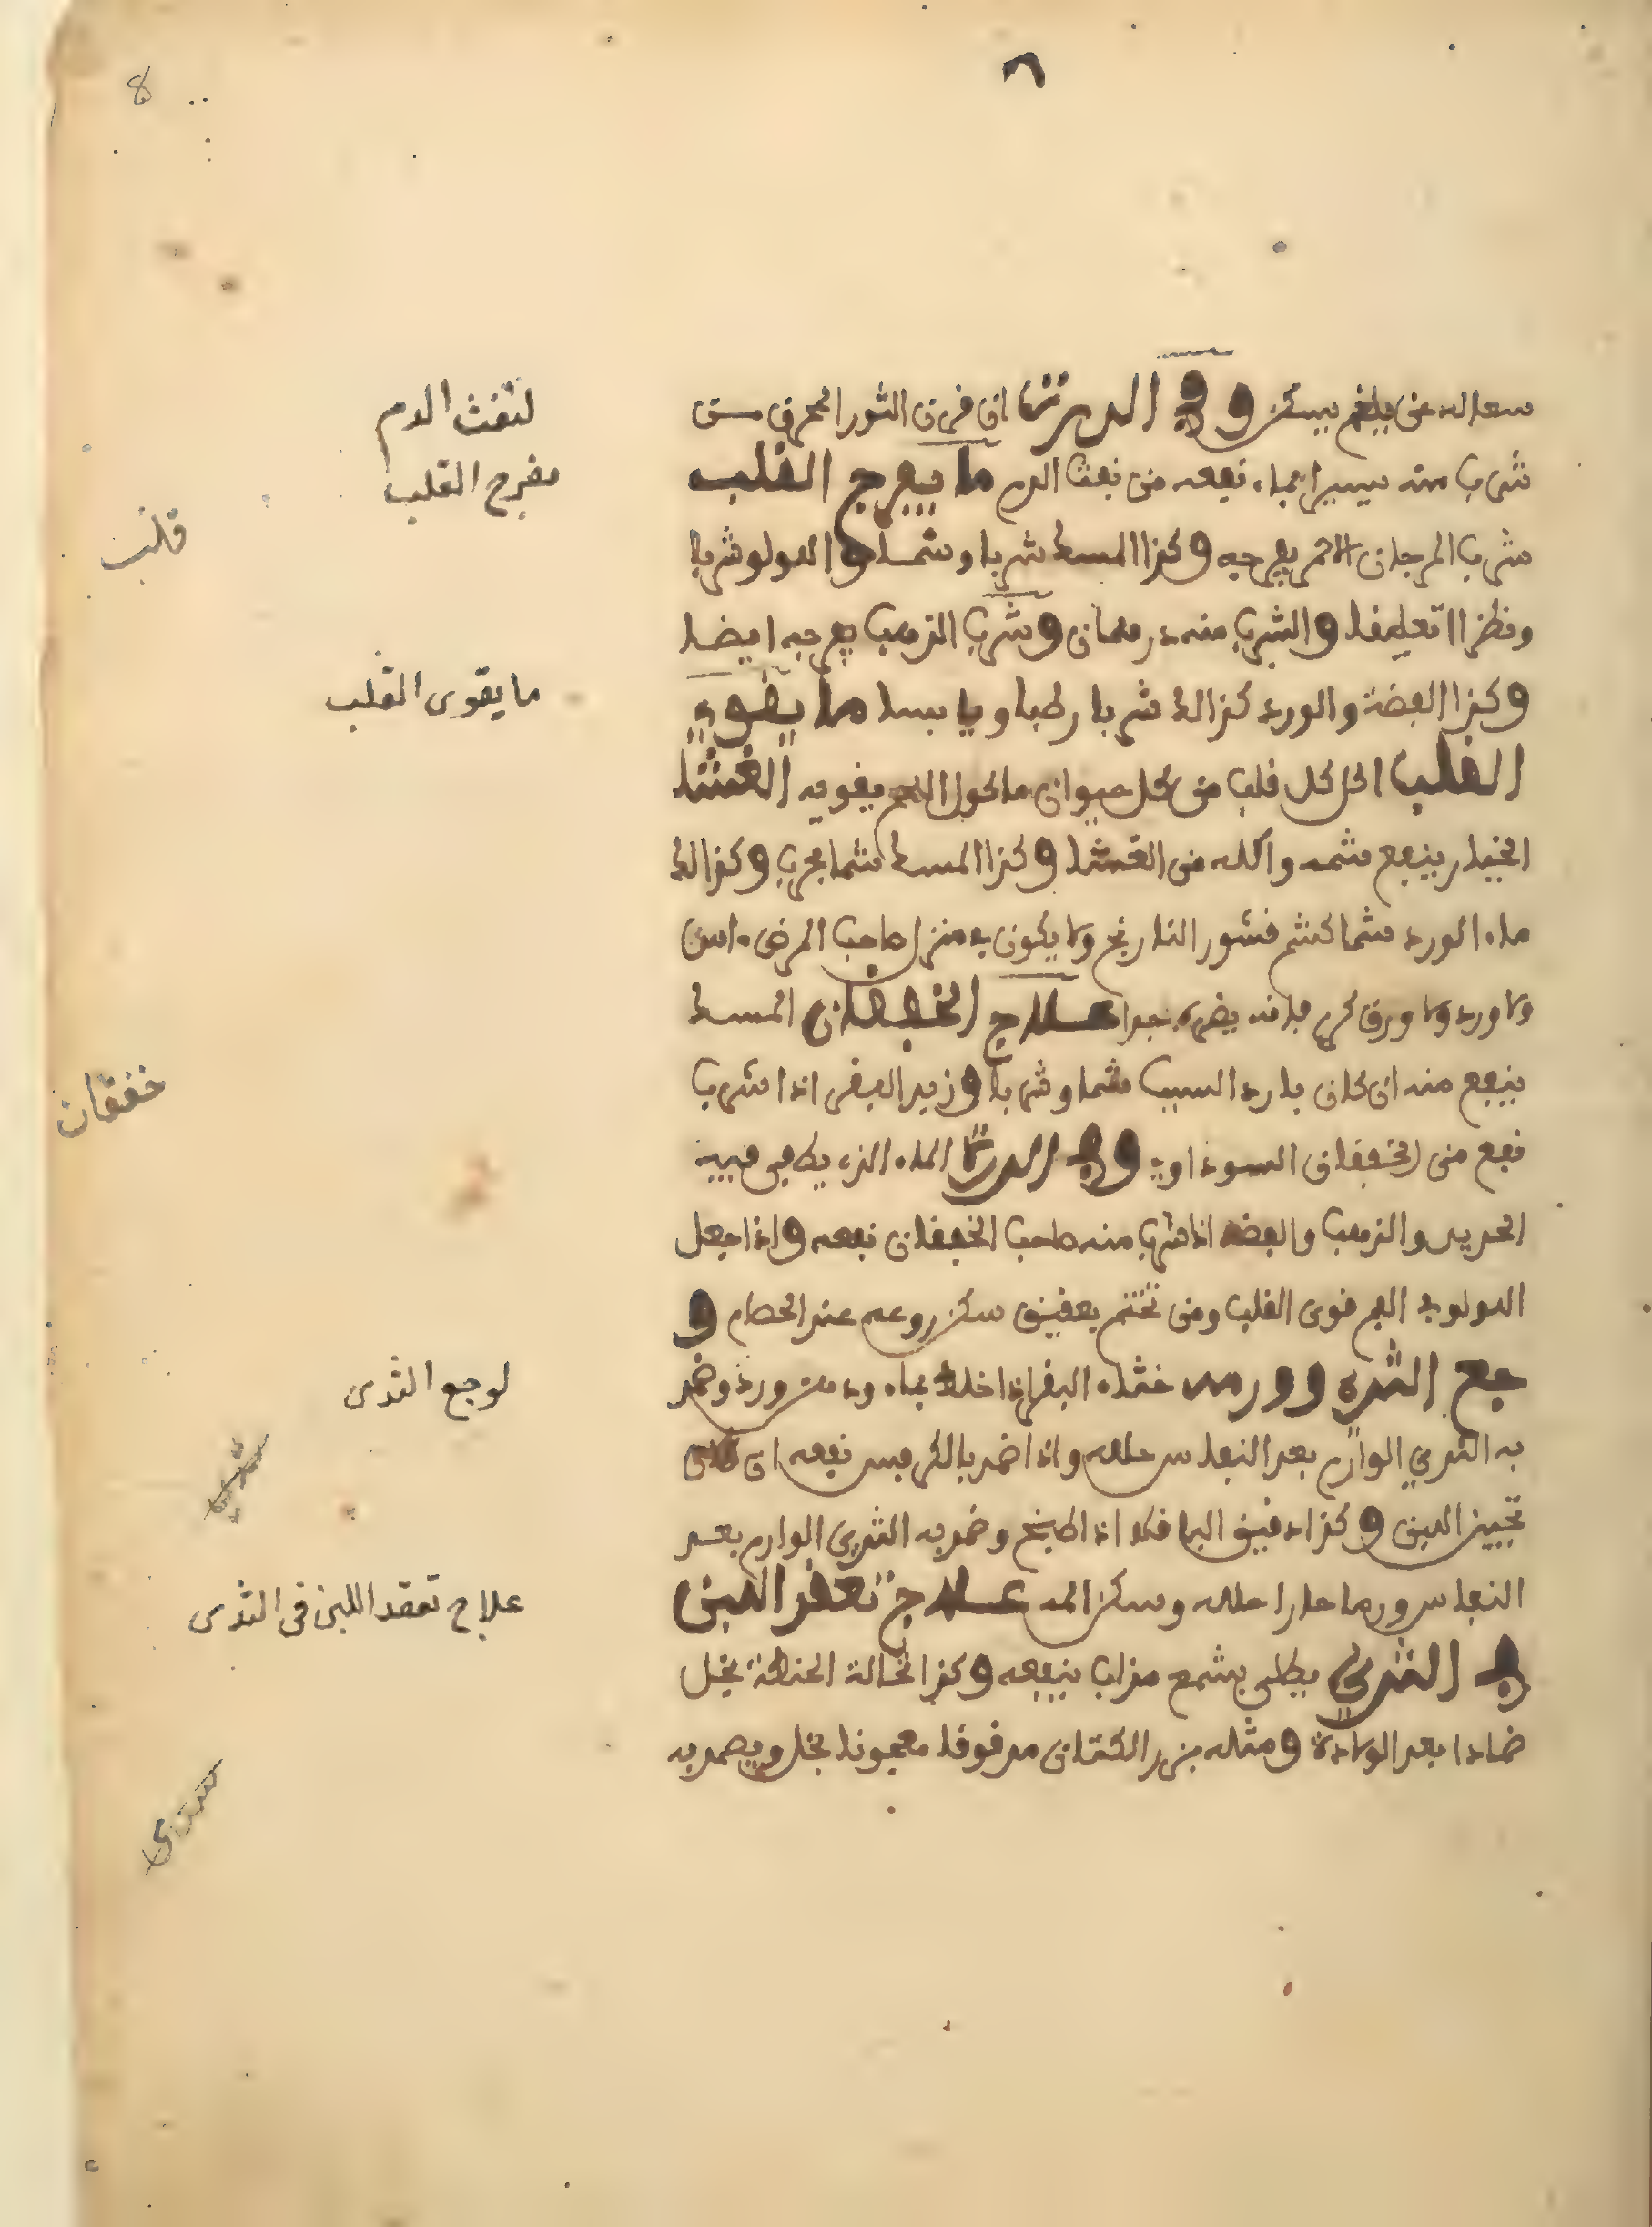 8
٨
سعاله عن بلغم يسكن وفي الدرة ان قرن الثور المحرق من
شرب منه يسيرا بماء نفعه من نفث الدم ما يفرح القلب
شرب المرجان الاحمر يفرحه وكذا المسك شربا وشما واللولو شربا
ونظرا تعليقا والشرب منه درهمان وشرب الذهب يفرحه ايضا
وكذا الفضة والورد كذالك شربا رطبا ويابسا ما يقوي
القلب اكل كل قلب من كل حيوان ماكول اللحم يقويه الغشا
الخيار ينفع شمه واكله من الغشا وكذا المسك شما مجرب وكذالك
ماء الورد شما كشم قشور النارنج ولا يكون في منزل صاحب المرض اس
ولا ورد ولا ورق كرم فانه يضره جدا علاج الخفقان المسك
ينفع منه ان كان بارد السبب شما وشربا وزبد البقر اذا شرب
نفع من الخفقان السوداوي وفي الدرة الماء الذي يطفى فيه
الحديد والذهب والفضة اذا شرب منه صاحب الخفقان نفعه واذا جعل
اللولو في الفم قوى القلب ومن تختم بعقيق سكن روعه عند الخصام و
جع الثدي وورمه خثاء البقر اذا خلط بماء ودهن ورد وضمد
به الثدي الوارم بعد النفاس حلله واذا ضمد بالكرفس نفعه ان كان
تجبين اللبن وكذا دقيق الباقلا اذا طبخ وضمد به الثدي الوارم بعد
النفاس ورما حارا حلله وسكن المه علاج تعقد اللبن
في الثدي يطلى بشمع مذاب ينفعه وكذا نخالة الحنطة بخل
ضمادا بعد الولادة ومثله بزر الكتان مدقوقا معجونا بخل ويضمد به
لنفث الدم
مفرح القلب
قلب
ما يقوى القلب
خفقان
لوجع الثدى
علاج تعقد اللبن فى الثدى